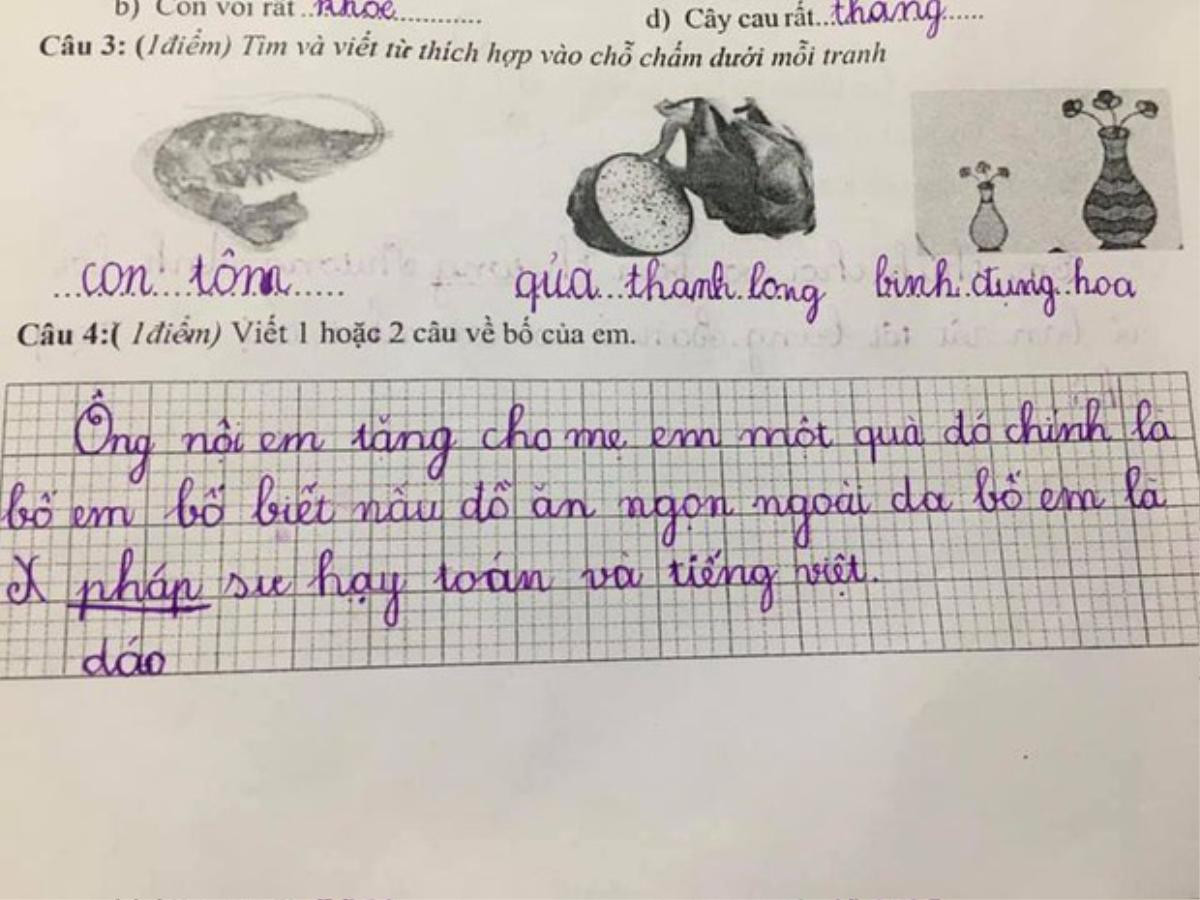 b) Con voi rất ..khỏe............
d) Cây cau rất..thẳng......
Câu 3: (1điểm) Tìm và viết từ thích hợp vào chỗ chấm dưới mỗi tranh
...con....tôm......
qủa...thanh.long
bình.đựng.hoa
Câu 4:( 1điểm) Viết 1 hoặc 2 câu về bố của em.
Ông nội em tặng cho mẹ em một quà đó chính là
bố em bố biết nấu đồ ăn ngọn ngoài da bố em là
X pháp sư hạy toán và tiếng việt.
dáo